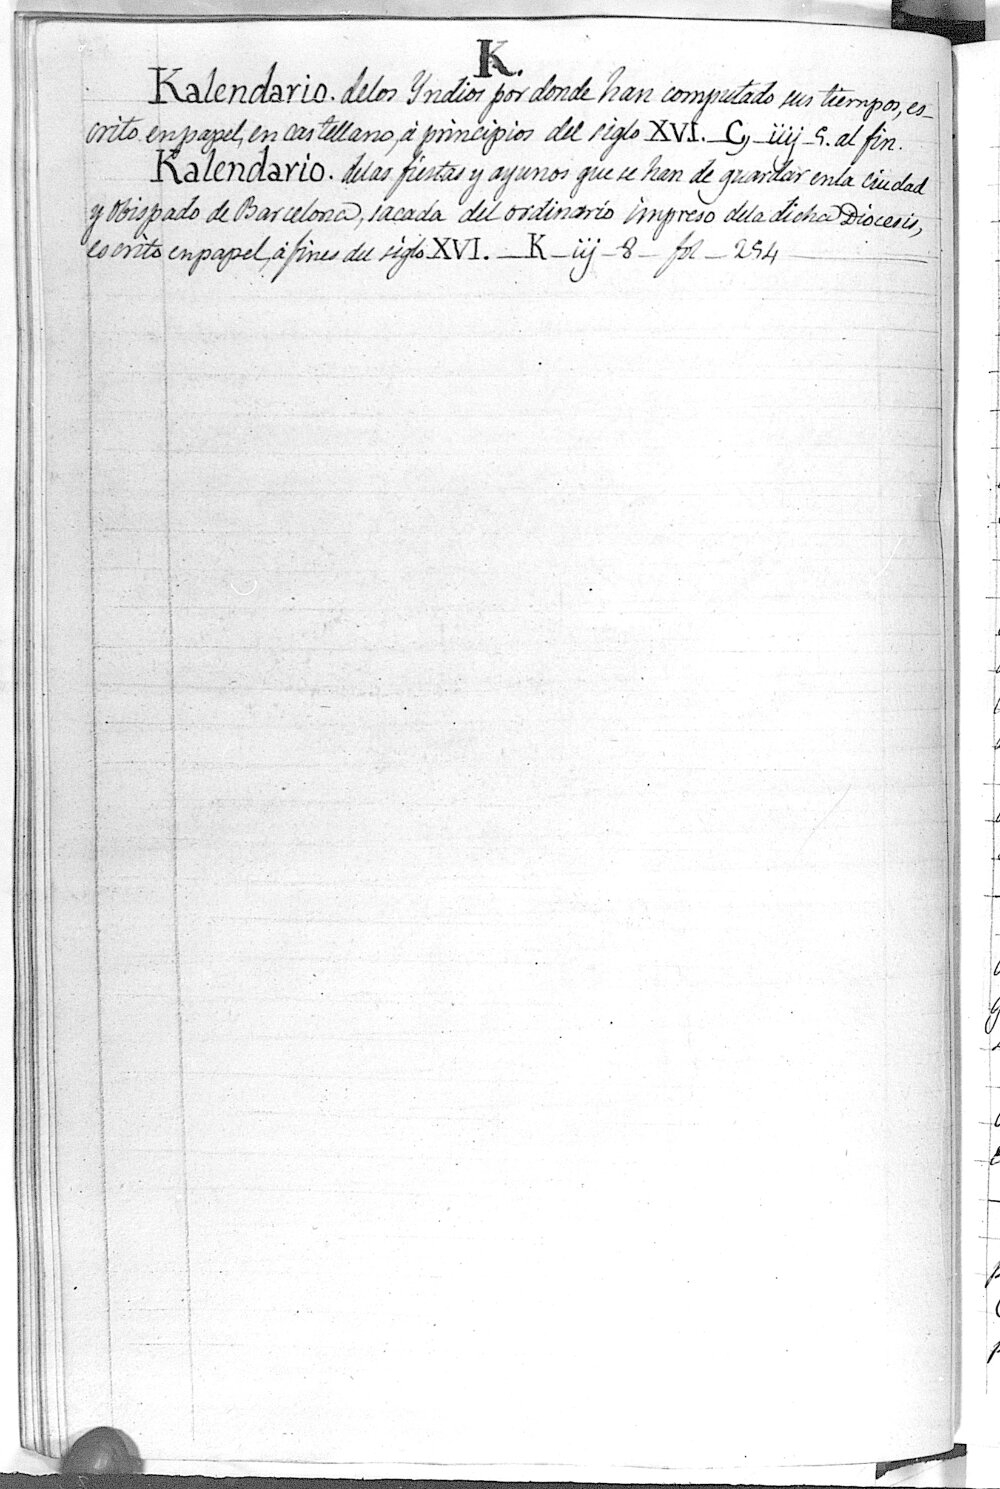 K.
Kalendario. delos Yndios por donde han computado sus tiempos, es_
crito en papel, en castellano, á principios del siglo XVI. _ Ç _ iiij _ 5. al fin.
Kalendario. delas fiestas y ayunos que se han de guardar en la Ciudad
y Obispado de Barcelona, sacada del ordinario impreso dela dicha Diocesis,
escrito en papel, á fines del siglo XVI. _ K _ iij _ 8 _ fol _ 254